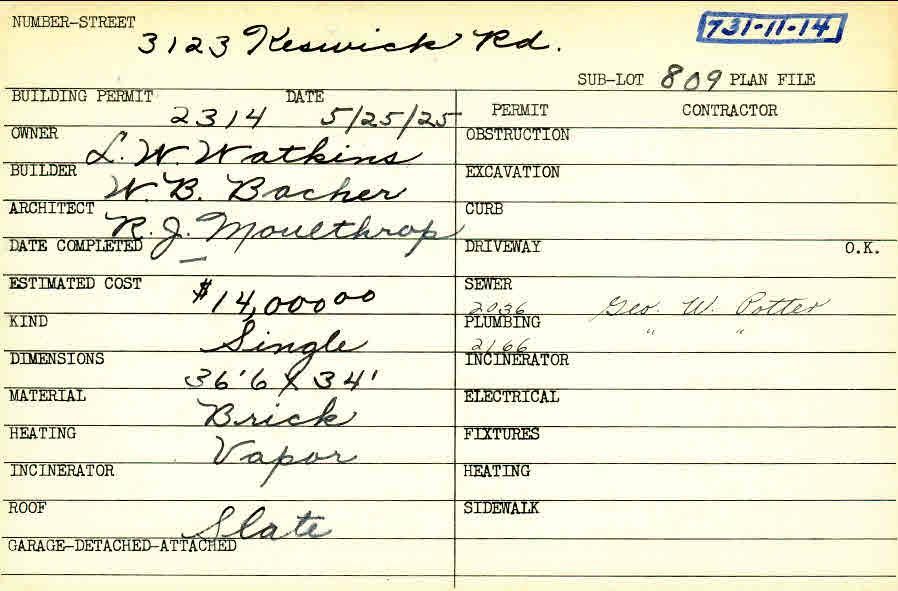 NUMBER-STREET
3123 Keswick Rd.
731-11-14
SUB-LOT 809 PLAN FILE
BUILDING PERMIT DATE
2314 5/25/25
PERMIT CONTRACTOR
OWNER L. W. Watkins
OBSTRUCTION
BUILDER W. B. Bacher
EXCAVATION
ARCHITECT R. J. Moulthrop
CURB
DATE COMPLETED —
DRIVEWAY O.K.
ESTIMATED COST $14,000 00
SEWER
2036 Geo. W. Potter
KIND Single
PLUMBING " "
2166
DIMENSIONS 36'6 X 34'
INCINERATOR
MATERIAL Brick
ELECTRICAL
HEATING Vapor
FIXTURES
INCINERATOR
HEATING
ROOF Slate
SIDEWALK
GARAGE-DETACHED-ATTACHED